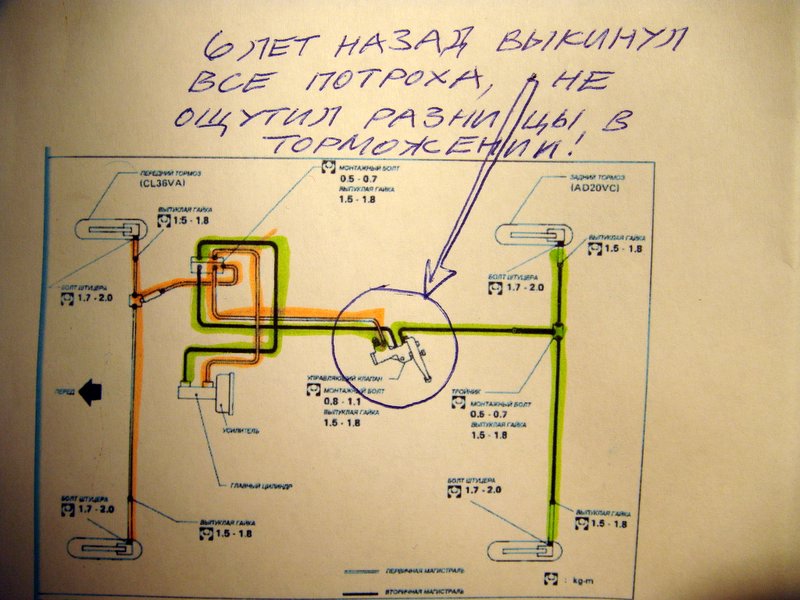 6 ЛЕТ НАЗАД ВЫКИНУЛ
ВСЕ ПОТРОХА, НЕ
ОЩУТИЛ РАЗНИЦЫ, В
ТОРМОЖЕНИИ!
ПЕРЕДНИЙ ТОРМОЗ
(CL36VA)
МОНТАЖНЫЙ БОЛТ
0.5 - 0.7
ВЫПУКЛАЯ ГАЙКА
1.5 - 1.8
ЗАДНИЙ ТОРМОЗ
(AD20VC)
ВЫПУКЛАЯ ГАЙКА
1.5 - 1.8
ВЫПУКЛАЯ ГАЙКА
1.5 - 1.8
БОЛТ ШТУЦЕРА
1.7 - 2.0
БОЛТ ШТУЦЕРА
1.7 - 2.0
ПЕРЕД
УПРАВЛЯЮЩИЙ КЛАПАН
МОНТАЖНЫЙ БОЛТ
0.8 - 1.1
ВЫПУКЛАЯ ГАЙКА
1.5 - 1.8
ТРОЙНИК
МОНТАЖНЫЙ БОЛТ
0.5 - 0.7
ВЫПУКЛАЯ ГАЙКА
1.5 - 1.8
УСИЛИТЕЛЬ
ГЛАВНЫЙ ЦИЛИНДР
БОЛТ ШТУЦЕРА
1.7 - 2.0
ВЫПУКЛАЯ ГАЙКА
1.5 - 1.8
БОЛТ ШТУЦЕРА
1.7 - 2.0
ВЫПУКЛАЯ ГАЙКА
1.5 - 1.8
ПЕРВИЧНАЯ МАГИСТРАЛЬ
ВТОРИЧНАЯ МАГИСТРАЛЬ
: kg-m